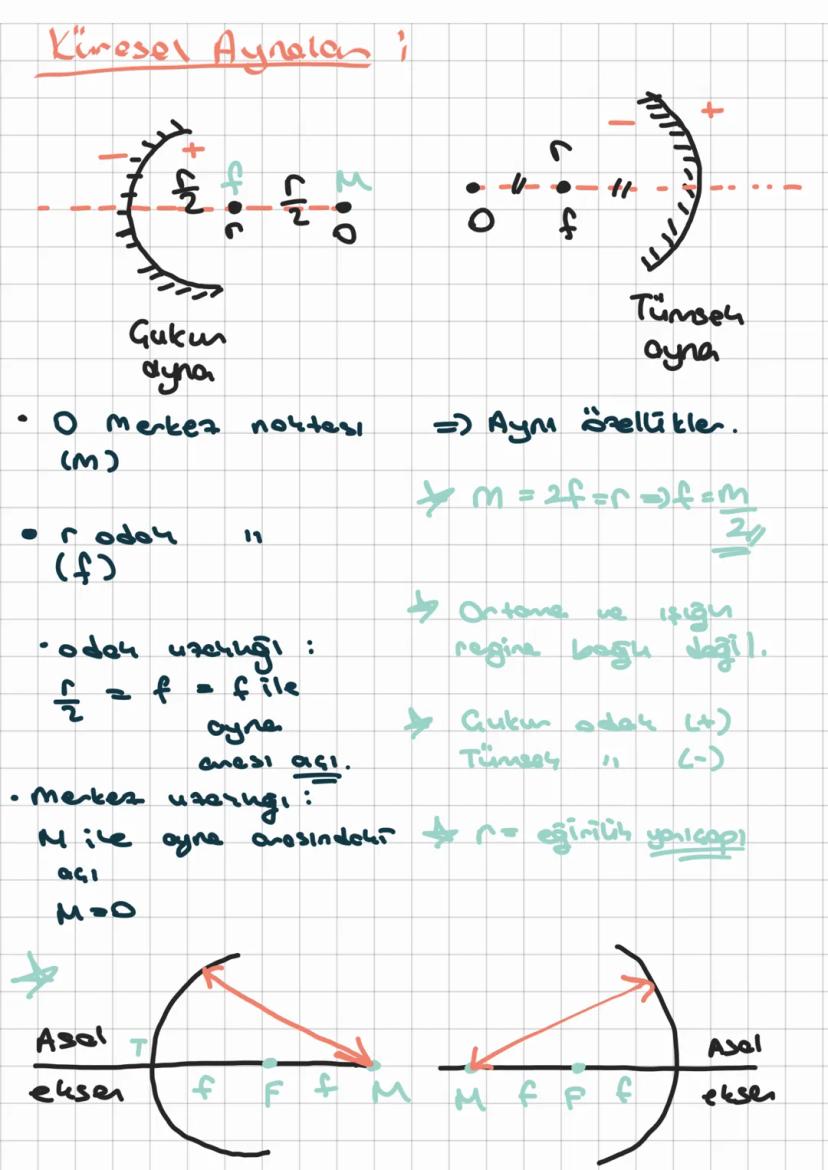 Küresel Aynalar ;
− + r/2 f r/2 M
r O
Çukur
ayna
− + r
O f
Tümsek
ayna
• O Merkez noktası
(M)
• r odak "
(f)
• odak uzaklığı :
r/2 = f = f ile
ayna
arası açı.
• Merkez uzaklığı :
M ile ayna arasındaki
açı
M=O
=> Aynı özellikler.
M = 2f = r => f = M/2
Ortama ve ışığın
regine bağlı değil.
Çukur odak (+)
Tümsek " (-)
r = eğirilik yarıçapı
Asal T
eksen f F f M
M f F f
Asal
eksen